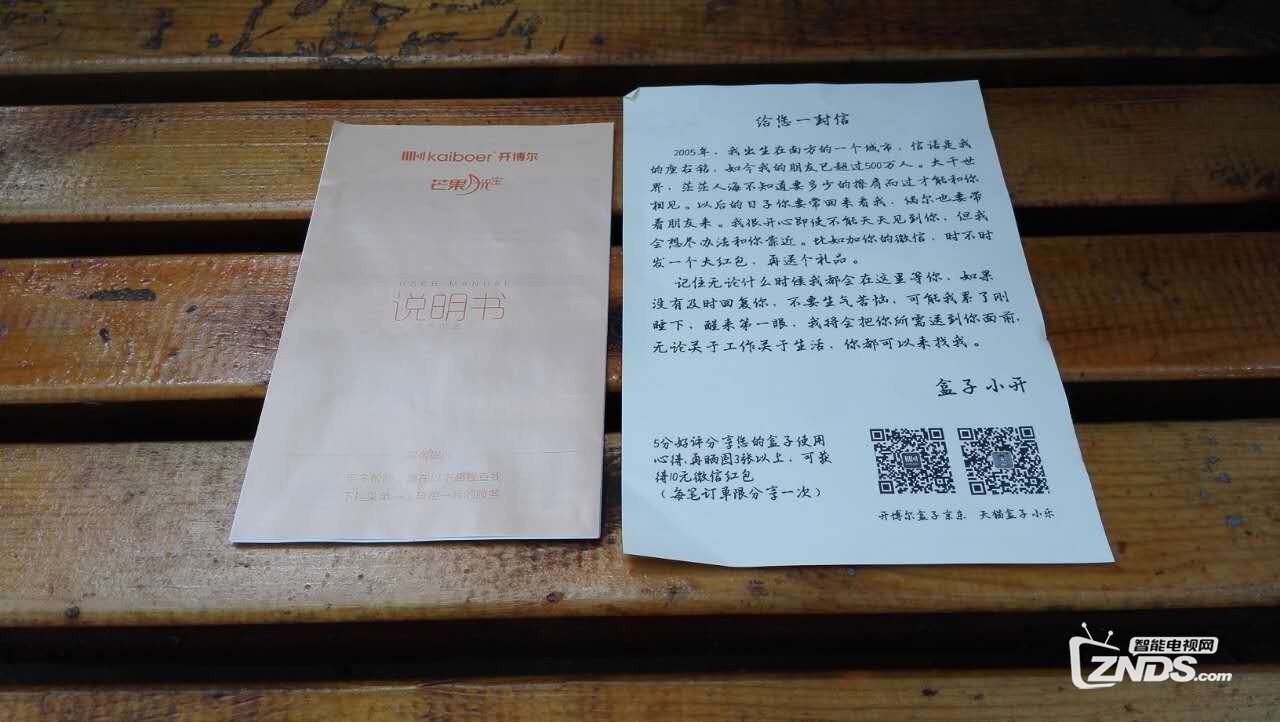 kaiboer 开博尔
芒果
USER MANUAL
说明书
给您一封信
2005年，我出生在南方的一个城市，信诺是我
的座右铭，如今我的朋友已超过500万人。大千世
界，茫茫人海不知道要多少的擦肩而过才能和你
相见。以后的日子你要常回来看我，偶尔也要带
着朋友来。我很开心即使不能天天见到你，但我
会想尽办法和你靠近。比如加你的微信，时不时
发一个大红包，再送个礼品。
记住无论什么时候我都会在这里等你，如果
没有及时回复你，不要生气苦恼，可能我累了刚
睡下，醒来第一眼，我将会把你所需送到你面前，
无论关于工作关于生活，你都可以来找我。
盒子小开
5分好评分享您的盒子使用
心得，再晒图3张以上，可获
得10元微信红包
（每笔订单限分享一次）
开博尔盒子京东 天猫盒子小乐
智能电视网
ZNDS.com